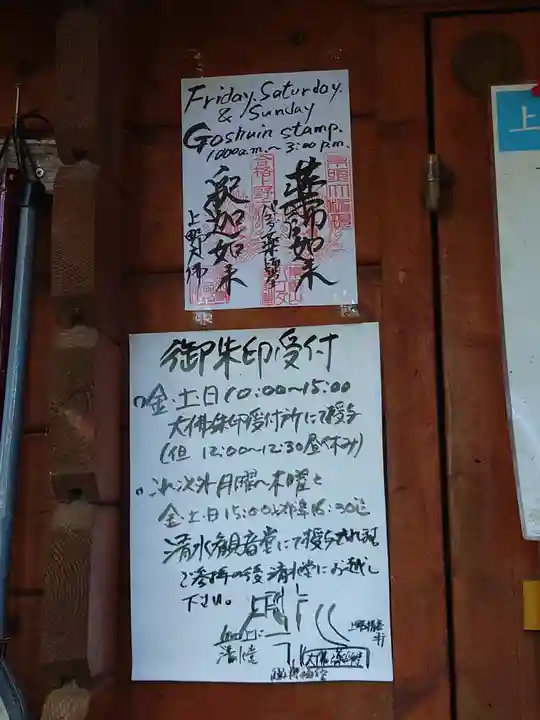 Friday. Saturday.
& Sunday
Goshuin stamp.
10:00a.m.~3:00p.m.
薬師如来
パゴダ薬師堂
釈迦如来
上野大佛
上
御朱印受付
金・土・日 10:00~15:00
大佛朱印受付所にて授与
(但 12:00~12:30昼休み)
それ以外月曜~木曜と
金・土・日15:00以降16:30迄
清水観音堂にて授与
の後清水堂にお越し
下さい。
清水堂